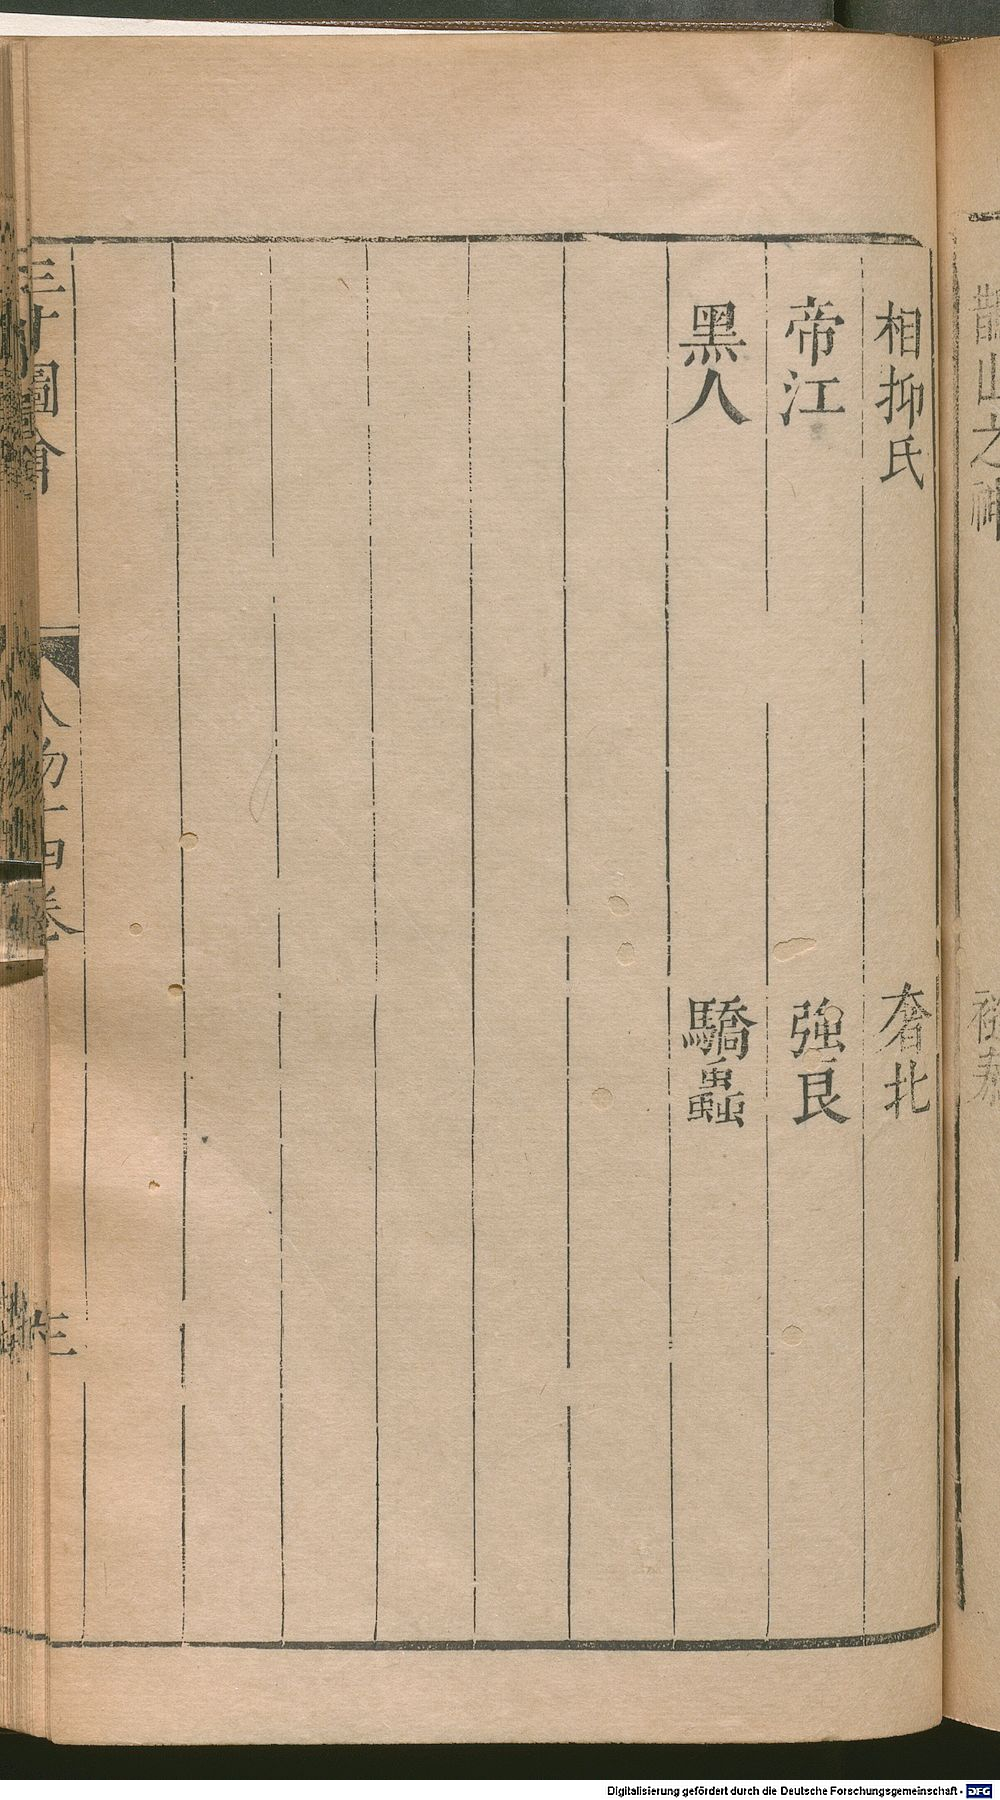 相抑氏 奢北
帝江 強良
黑人 驕蟲
三才圖會 人物十四卷 三
Digitalisierung gefördert durch die Deutsche Forschungsgemeinschaft - DFG